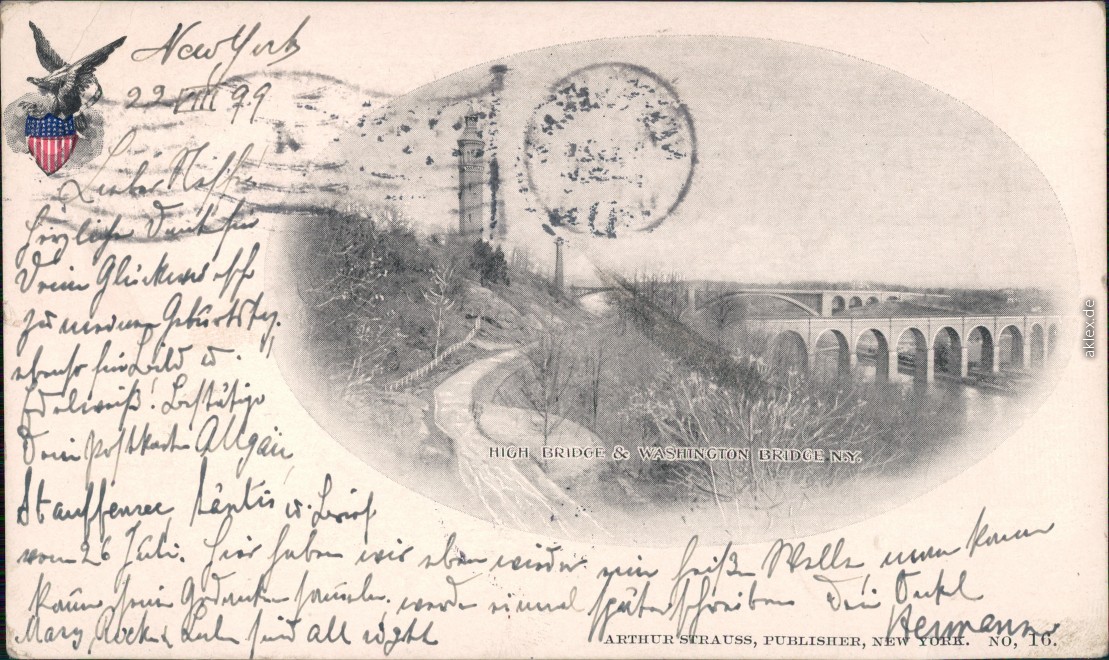 New York
22 VIII 99
Lieber Neffe!
Herzlichen Dank für
Dein Glückwunsch
zu meinem Geburtstag.
ebenso für Bild u.
Edelweiß! Bestätige
Dein Postkarte Allgäu,
Säntis u. Brief
vom 26 Juli. Hier haben wir eben wieder eine heiße Welle man kann
kaum sein Gedanken sammeln, werde einmal später schreiben Dein Onkel
Hermann
Mary & sind all right
HIGH BRIDGE & WASHINGTON BRIDGE N.Y.
ARTHUR STRAUSS, PUBLISHER, NEW YORK. NO, 16.
aklex.de